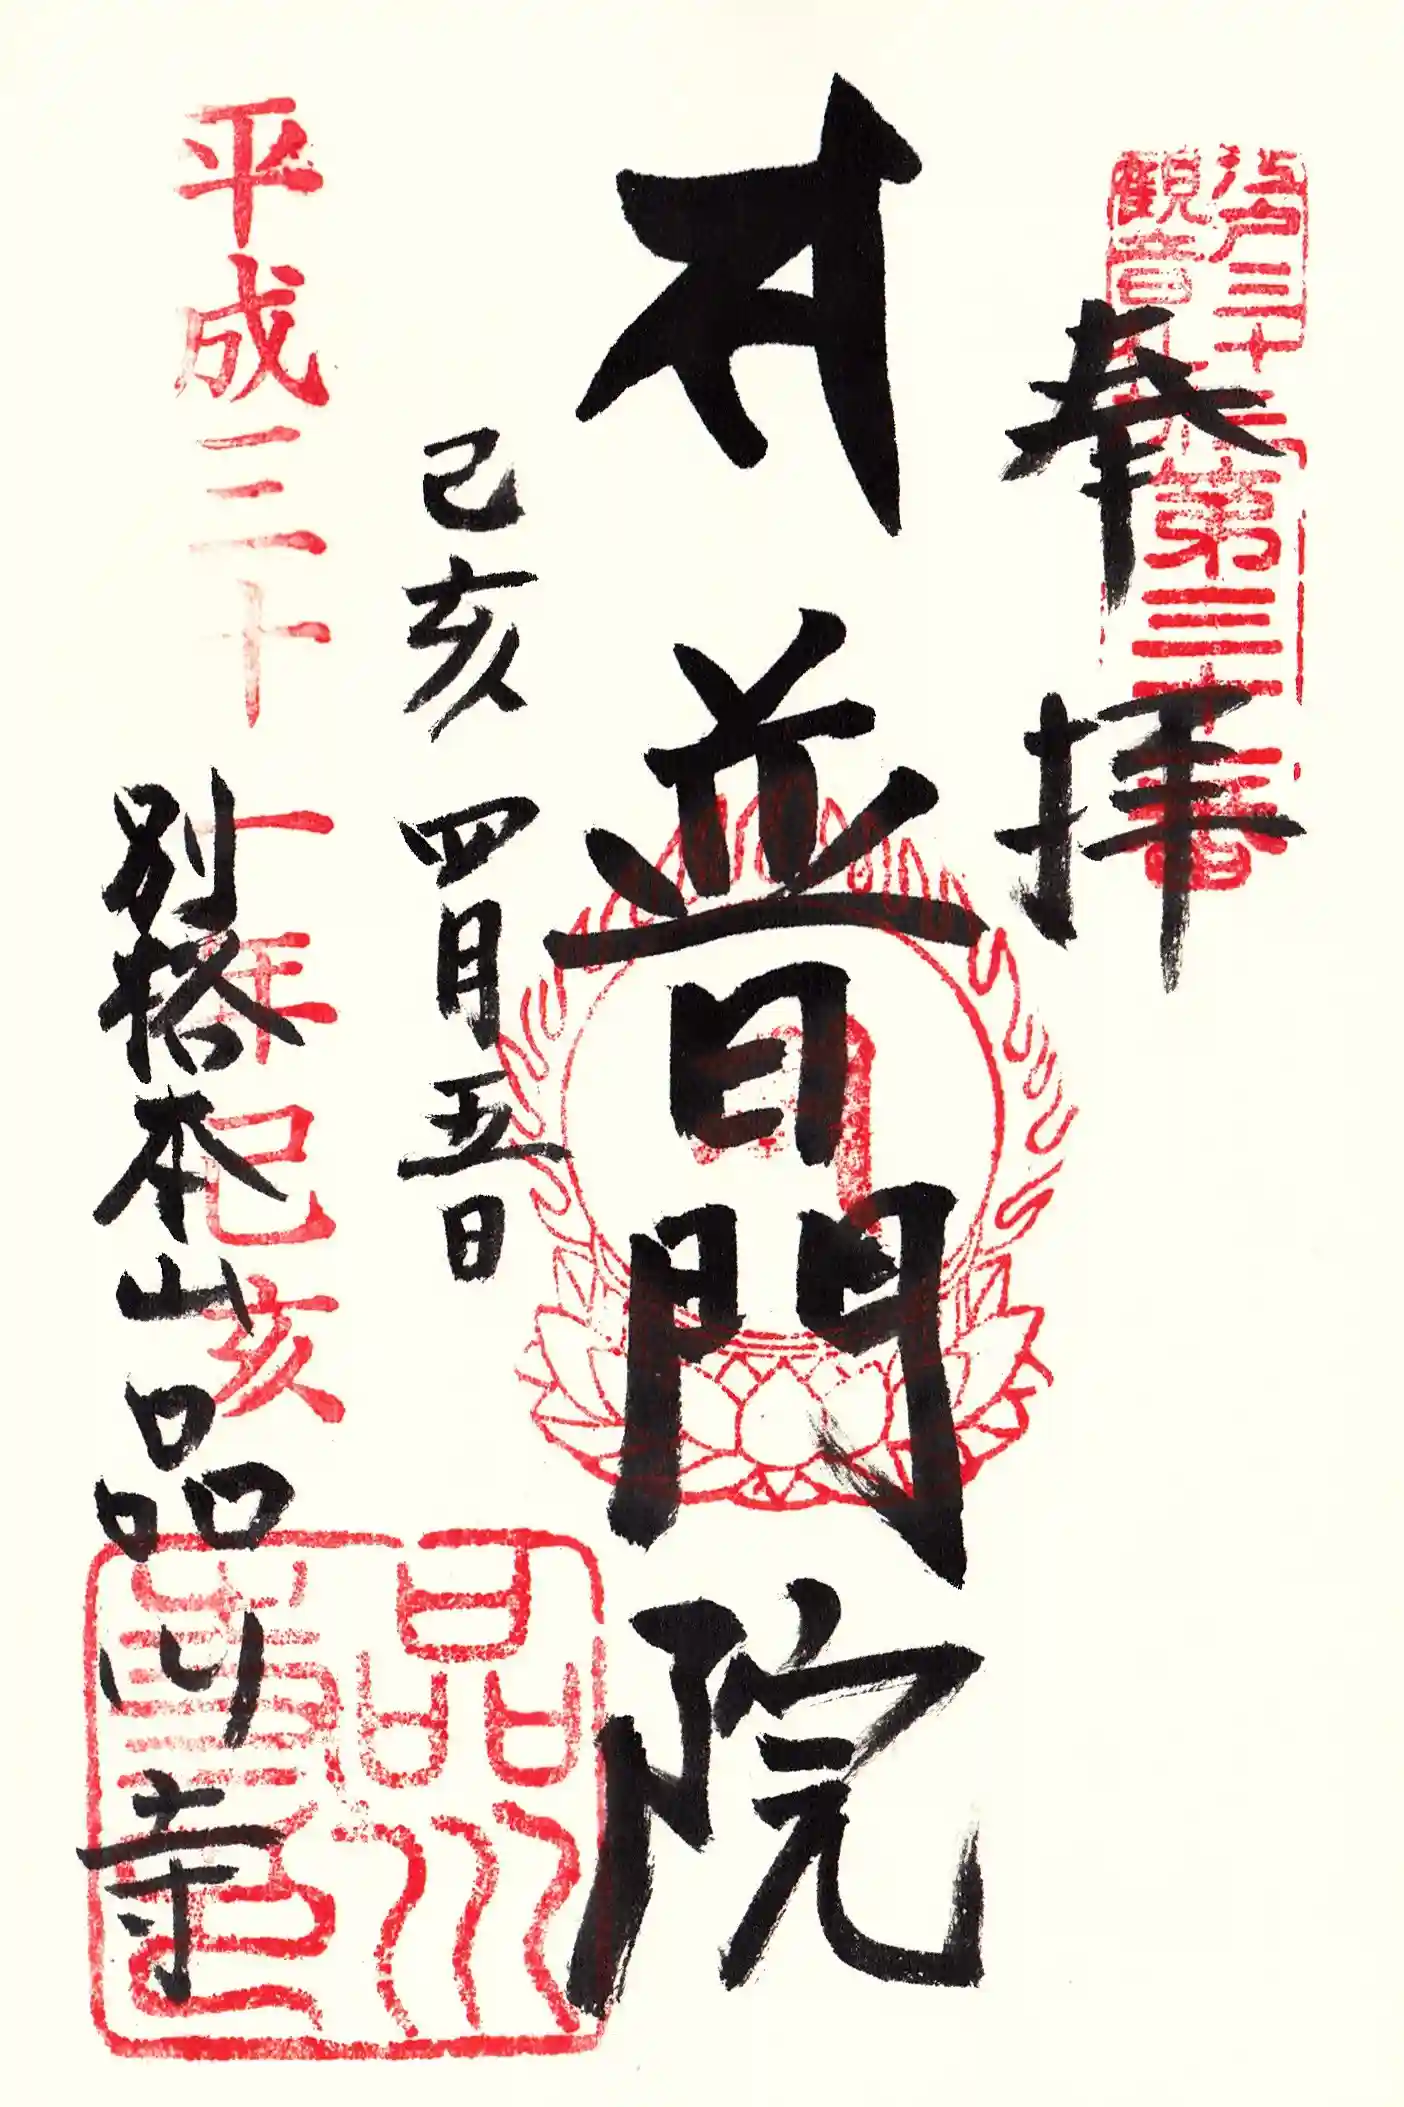 江戸三十三
観音札所
第三十三番
奉拝
普門院
己亥 四月五日
平成三十一年己亥
別格本山 品川寺
品川